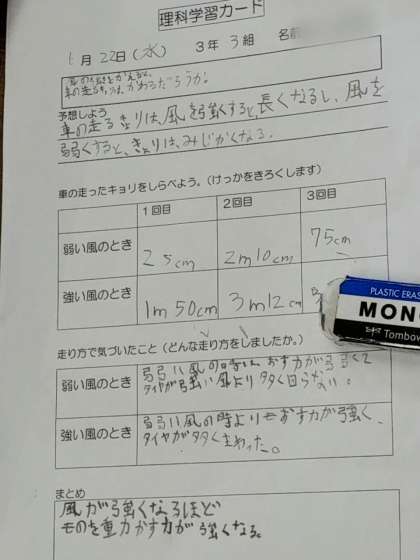 理科学習カード
月22日(水) 3年3組 名前
かわるだろうか。
予想しよう
車の走るきょりは、風を強くすると、長くなるし、風を
弱くすると、きょりは、みじかくなる。
車の走ったキョリをしらべよう。(けっかをきろくします)
1回目 2回目 3回目
弱い風のとき 25cm 2m10cm 75cm
強い風のとき 1m50cm 3m12cm
走り方で気づいたこと (どんな走り方をしましたか。)
弱い風のとき 弱い風の時は、おす力が弱くて
タイヤが強い風より多く回らない。
強い風のとき 弱い風の時よりもおす力が強く、
タイヤが多くまわった。
まとめ
風が強くなるほど
ものを動かす力が強くなる。
PLASTIC ERAS
MONO
Tombow